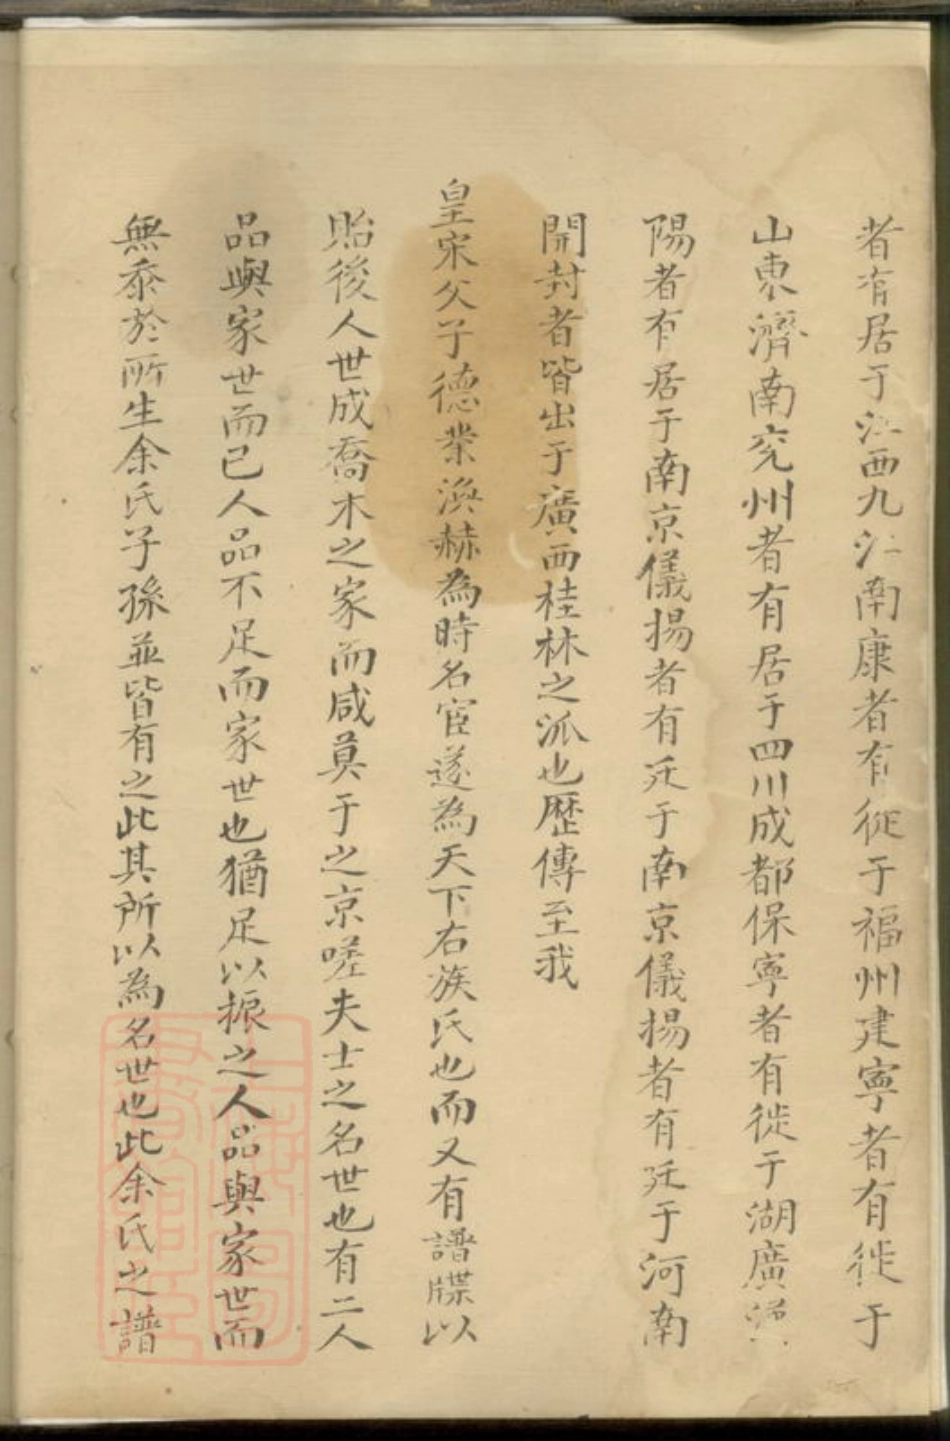 者有居于江西九江南康者有從于福州建寧者有徙于
山東濟南兖州者有居于四川成都保寧者有徙于湖廣
陽者有居于南京儀揚者有迁于南京儀揚者有迁于河南
開封者皆出于廣西桂林之派也歷傳至我
皇宋父子德業渙赫為時名宦遂為天下右族氏也而又有譜牒以
貽後人世成喬木之家而咸莫于之京嗟夫士之名世也有二人
品與家世而已人品不足而家世也猶足以振之人品與家世而
無忝於所生余氏子孫並皆有之此其所以為名世也此余氏之譜